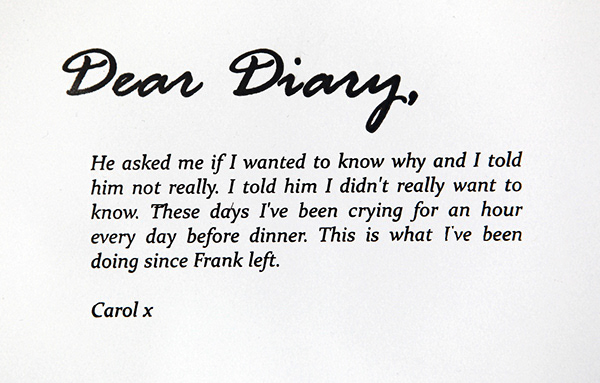 Dear Diary,
He asked me if I wanted to know why and I told
him not really. I told him I didn't really want to
know. These days I've been crying for an hour
every day before dinner. This is what I've been
doing since Frank left.
Carol x